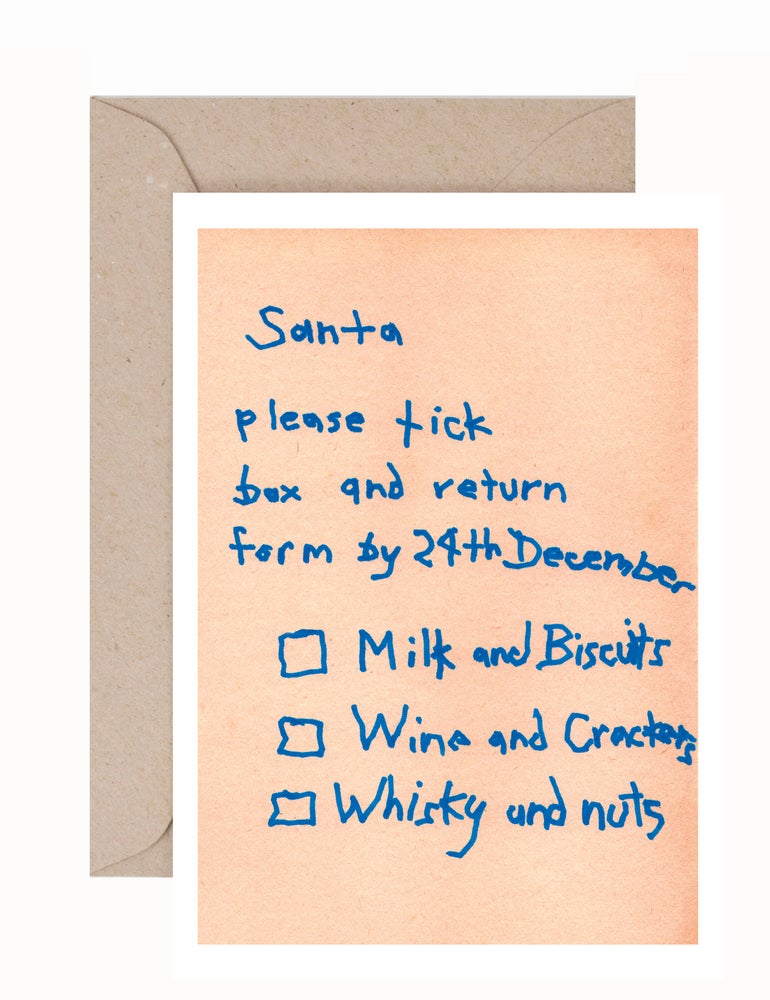 Santa
please tick
box and return
form by 24th December
☐ Milk and Biscuits
☐ Wine and Crackers
☐ Whisky and nuts